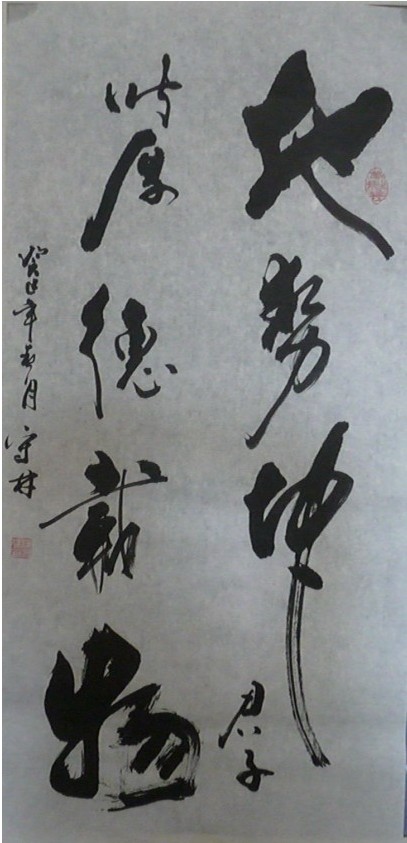 地势坤君子
以厚德载物
癸巳年春月守林